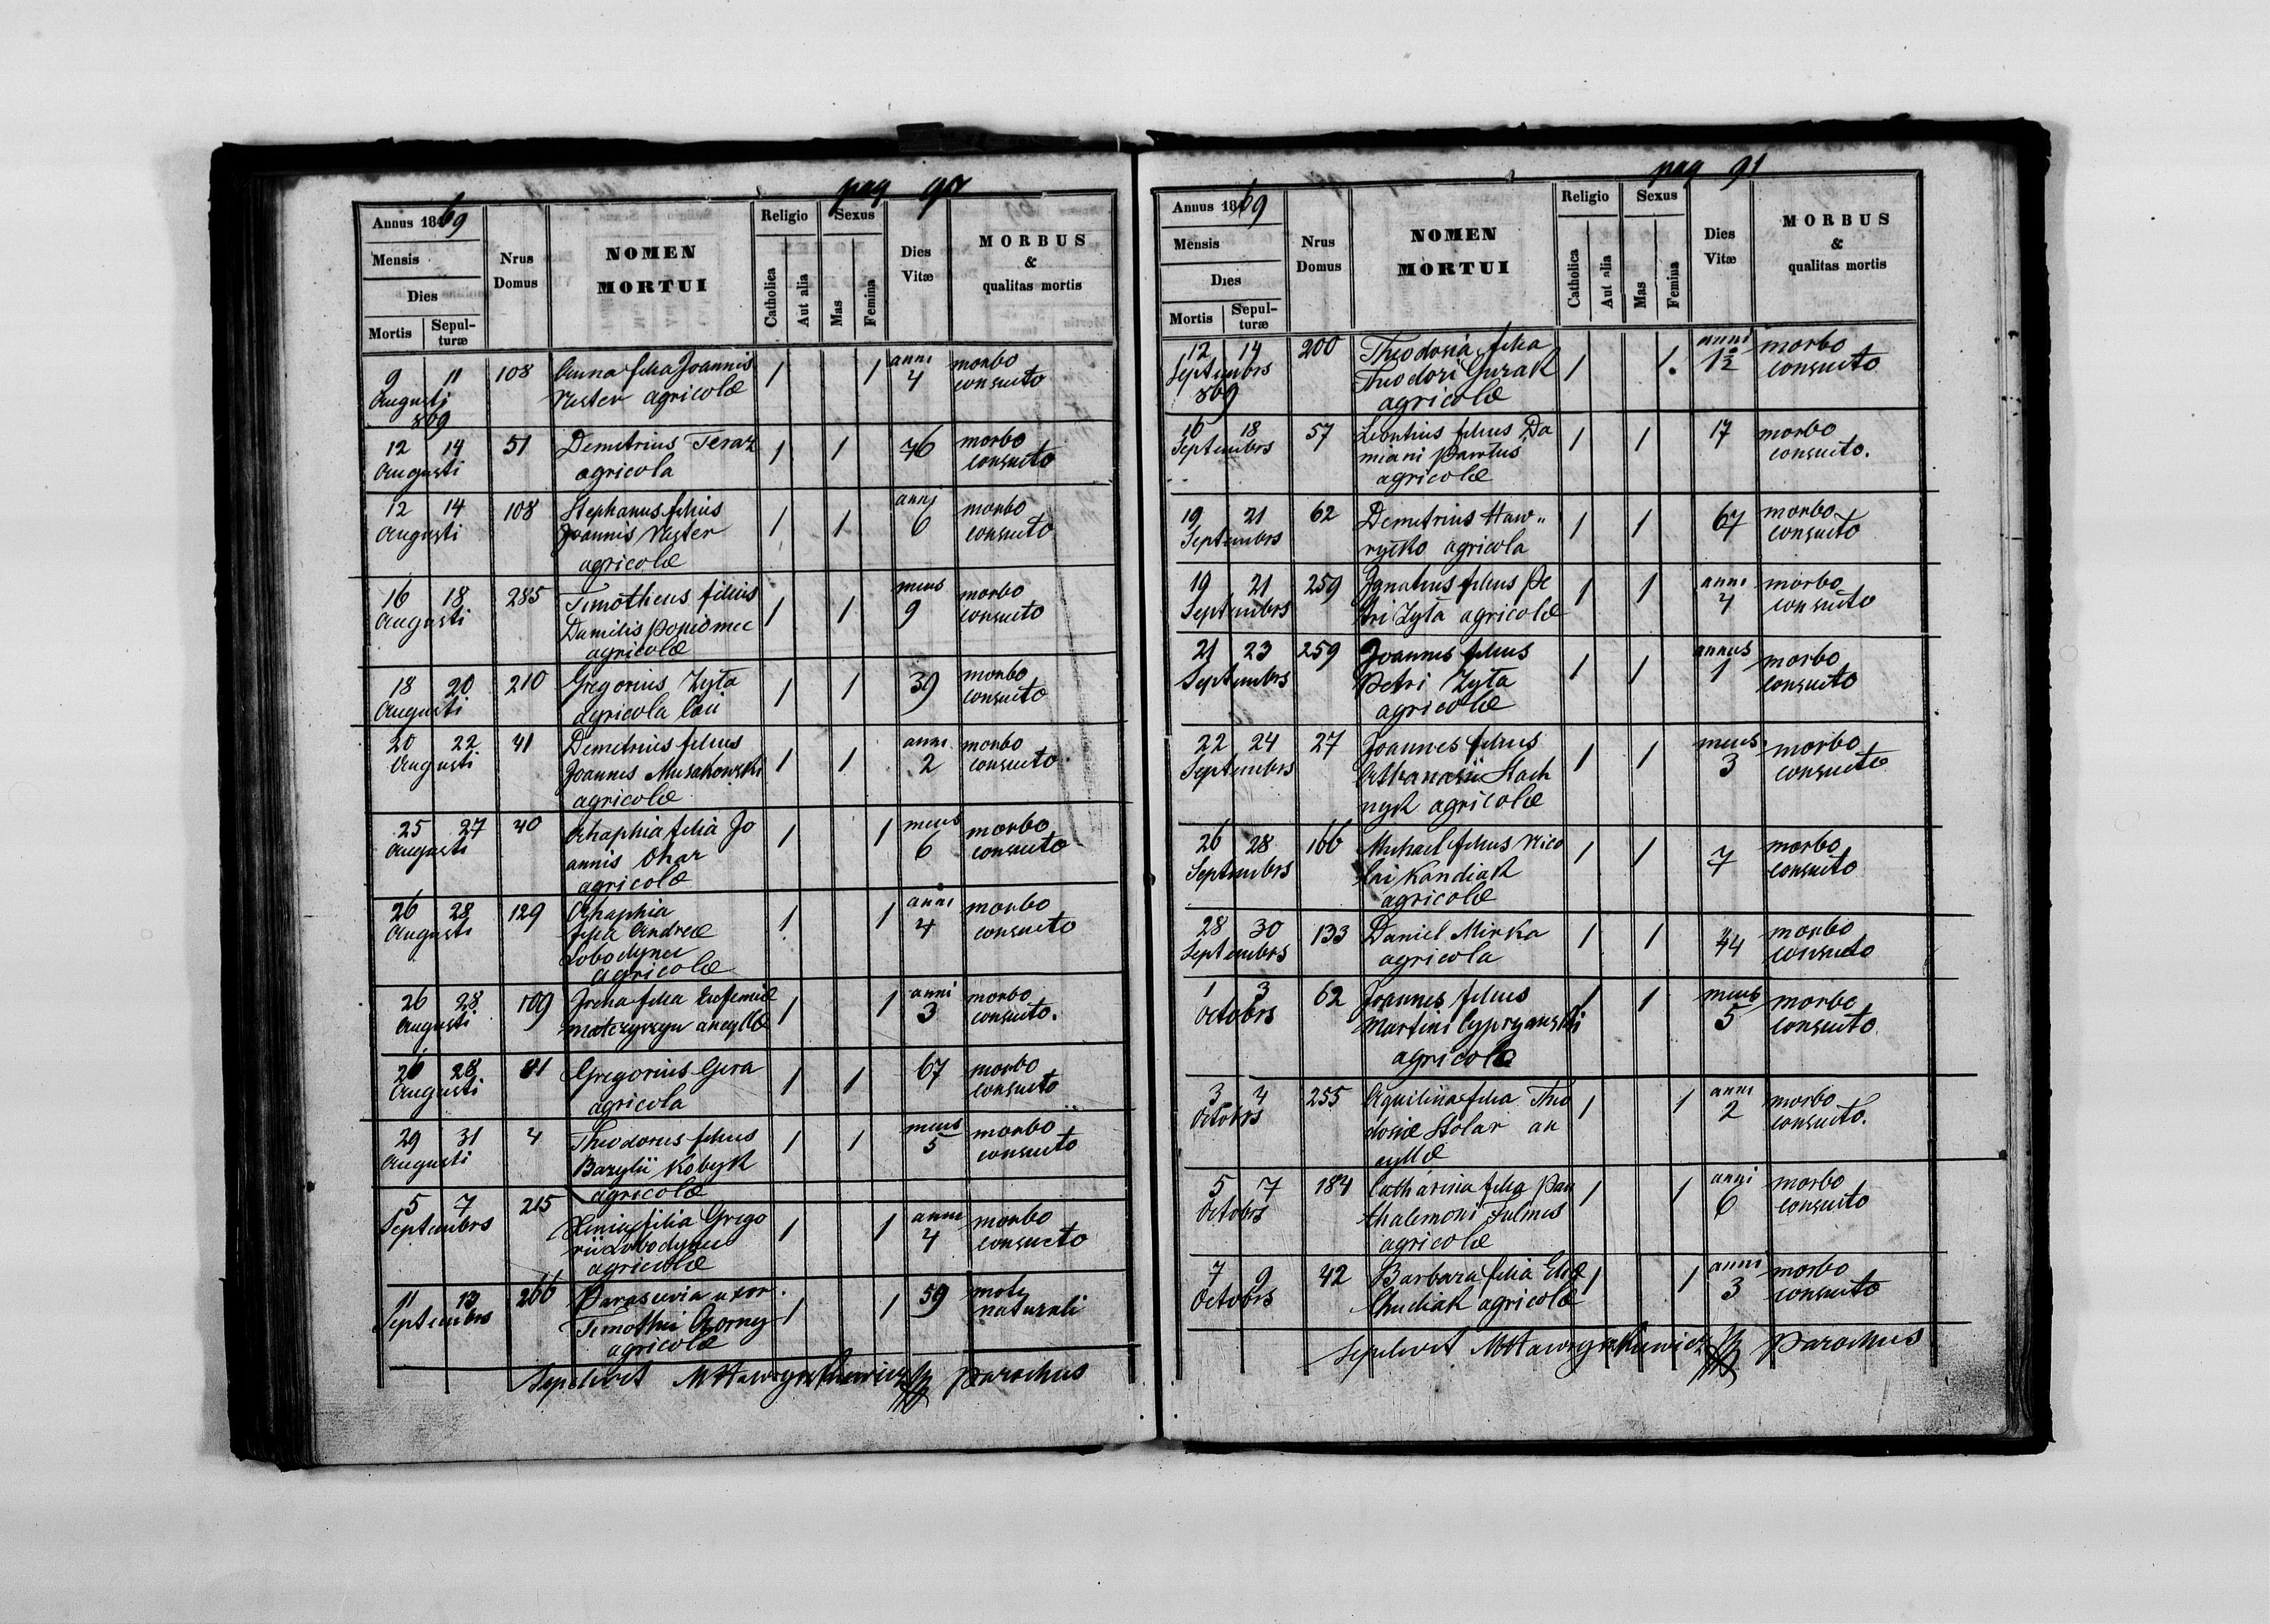 pag 90
Annus 1869
Mensis
Dies
Mortis Sepulturæ
Nrus Domus
NOMEN MORTUI
Religio
Catholica Aut alia
Sexus
Mas Femina
Dies Vitæ
MORBUS & qualitas mortis
9 11 108 Anna filia Joannis 1 1 anni morbo
Augusti Nester agricolæ 4 consueto
869
12 14 51 Demetrius Teraz 1 1 76 morbo
Augusti agricola consueto
12 14 108 Stephanus filius 1 1 anni morbo
Augusti Joannis Nester 6 consueto
agricolæ
16 18 285 Timotheus filius 1 1 mens morbo
Augusti Danielis 9 consueto
agricolæ
18 20 210 Gregorius Zyta 1 1 39 morbo
Augusti agricola consueto
20 22 41 Demetrius filius 1 1 anni morbo
Augusti Joannis Musakowski 2 consueto
agricolæ
25 27 40 Ahaphia filia Jo 1 1 mens morbo
Augusti annis Ohar 6 consueto
agricolæ
26 28 129 Ahaphia 1 1 anni morbo
Augusti filia Andreæ 4 consueto
Lobodyner
agricolæ
26 28 109 Irena filia Eufemiæ 1 1 anni morbo
Augusti ancyllæ 3 consueto.
26 28 81 Gregorius Gera 1 1 67 morbo
Augusti agricola consueto
29 31 4 Theodorus filius 1 1 mens morbo
Augusti Bazylii Kobyk 5 consueto
agricolæ
5 7 215 Xenia filia Grego 1 1 anni morbo
Septembrs rii Lobodyner 4 consueto
agricolæ
11 13 266 Parascevia uxor 1 1 59
Septembrs Timothei Czorny naturali
agricolæ
Sepelivit MHawrysikiewicz Parochus
pag 91
Annus 1869
Mensis
Dies
Mortis Sepulturæ
Nrus Domus
NOMEN MORTUI
Religio
Catholica Aut alia
Sexus
Mas Femina
Dies Vitæ
MORBUS & qualitas mortis
12 14 200 Theodosia filia 1 1. anni morbo
Septembrs Theodori Gurak 1½ consueto
869 agricolæ
16 18 57 Leontius filius Da 1 1 17 morbo
Septembrs miani Pawlus consueto.
agricolæ
19 21 62 Demetrius Haw„ 1 1 67 morbo
Septembrs agricola consueto
19 21 259 Ignatius filius Pe 1 1 anni morbo
Septembrs tri Zyta agricolæ 4 consueto
21 23 259 Joannes filius 1 1 annus morbo
Septembrs Petri Zyta 1 consueto
agricolæ
22 24 27 Joannes filius 1 1 mens. morbo
Septembrs Athanasii Stach 3 consueto
nyk agricolæ
26 28 166 Michael filius Nico 1 1 7 morbo
Septembrs lai Kandiak consueto
agricolæ
28 30 133 Daniel Mirka 1 1 44 morbo
Septembrs agricola consueto
1 3 62 Joannes filius 1 1 mens morbo
Octobrs Martini Cypryanski 5 consueto
agricolæ
3 4 255 Aquilina filia Theo 1 1 anni morbo
Octobrs dosiæ Stolar an 2 consueto.
cyllæ
5 7 184 Catharina filia Pan 1 1 anni morbo
Octobrs thalemoni Fulmes 6 consueto
agricolæ
7 9 42 Barbara filia Eliæ 1 1 anni morbo
Octobrs Chudiak agricolæ 3 consueto
Sepelivit MHawrysikiewicz Parochus